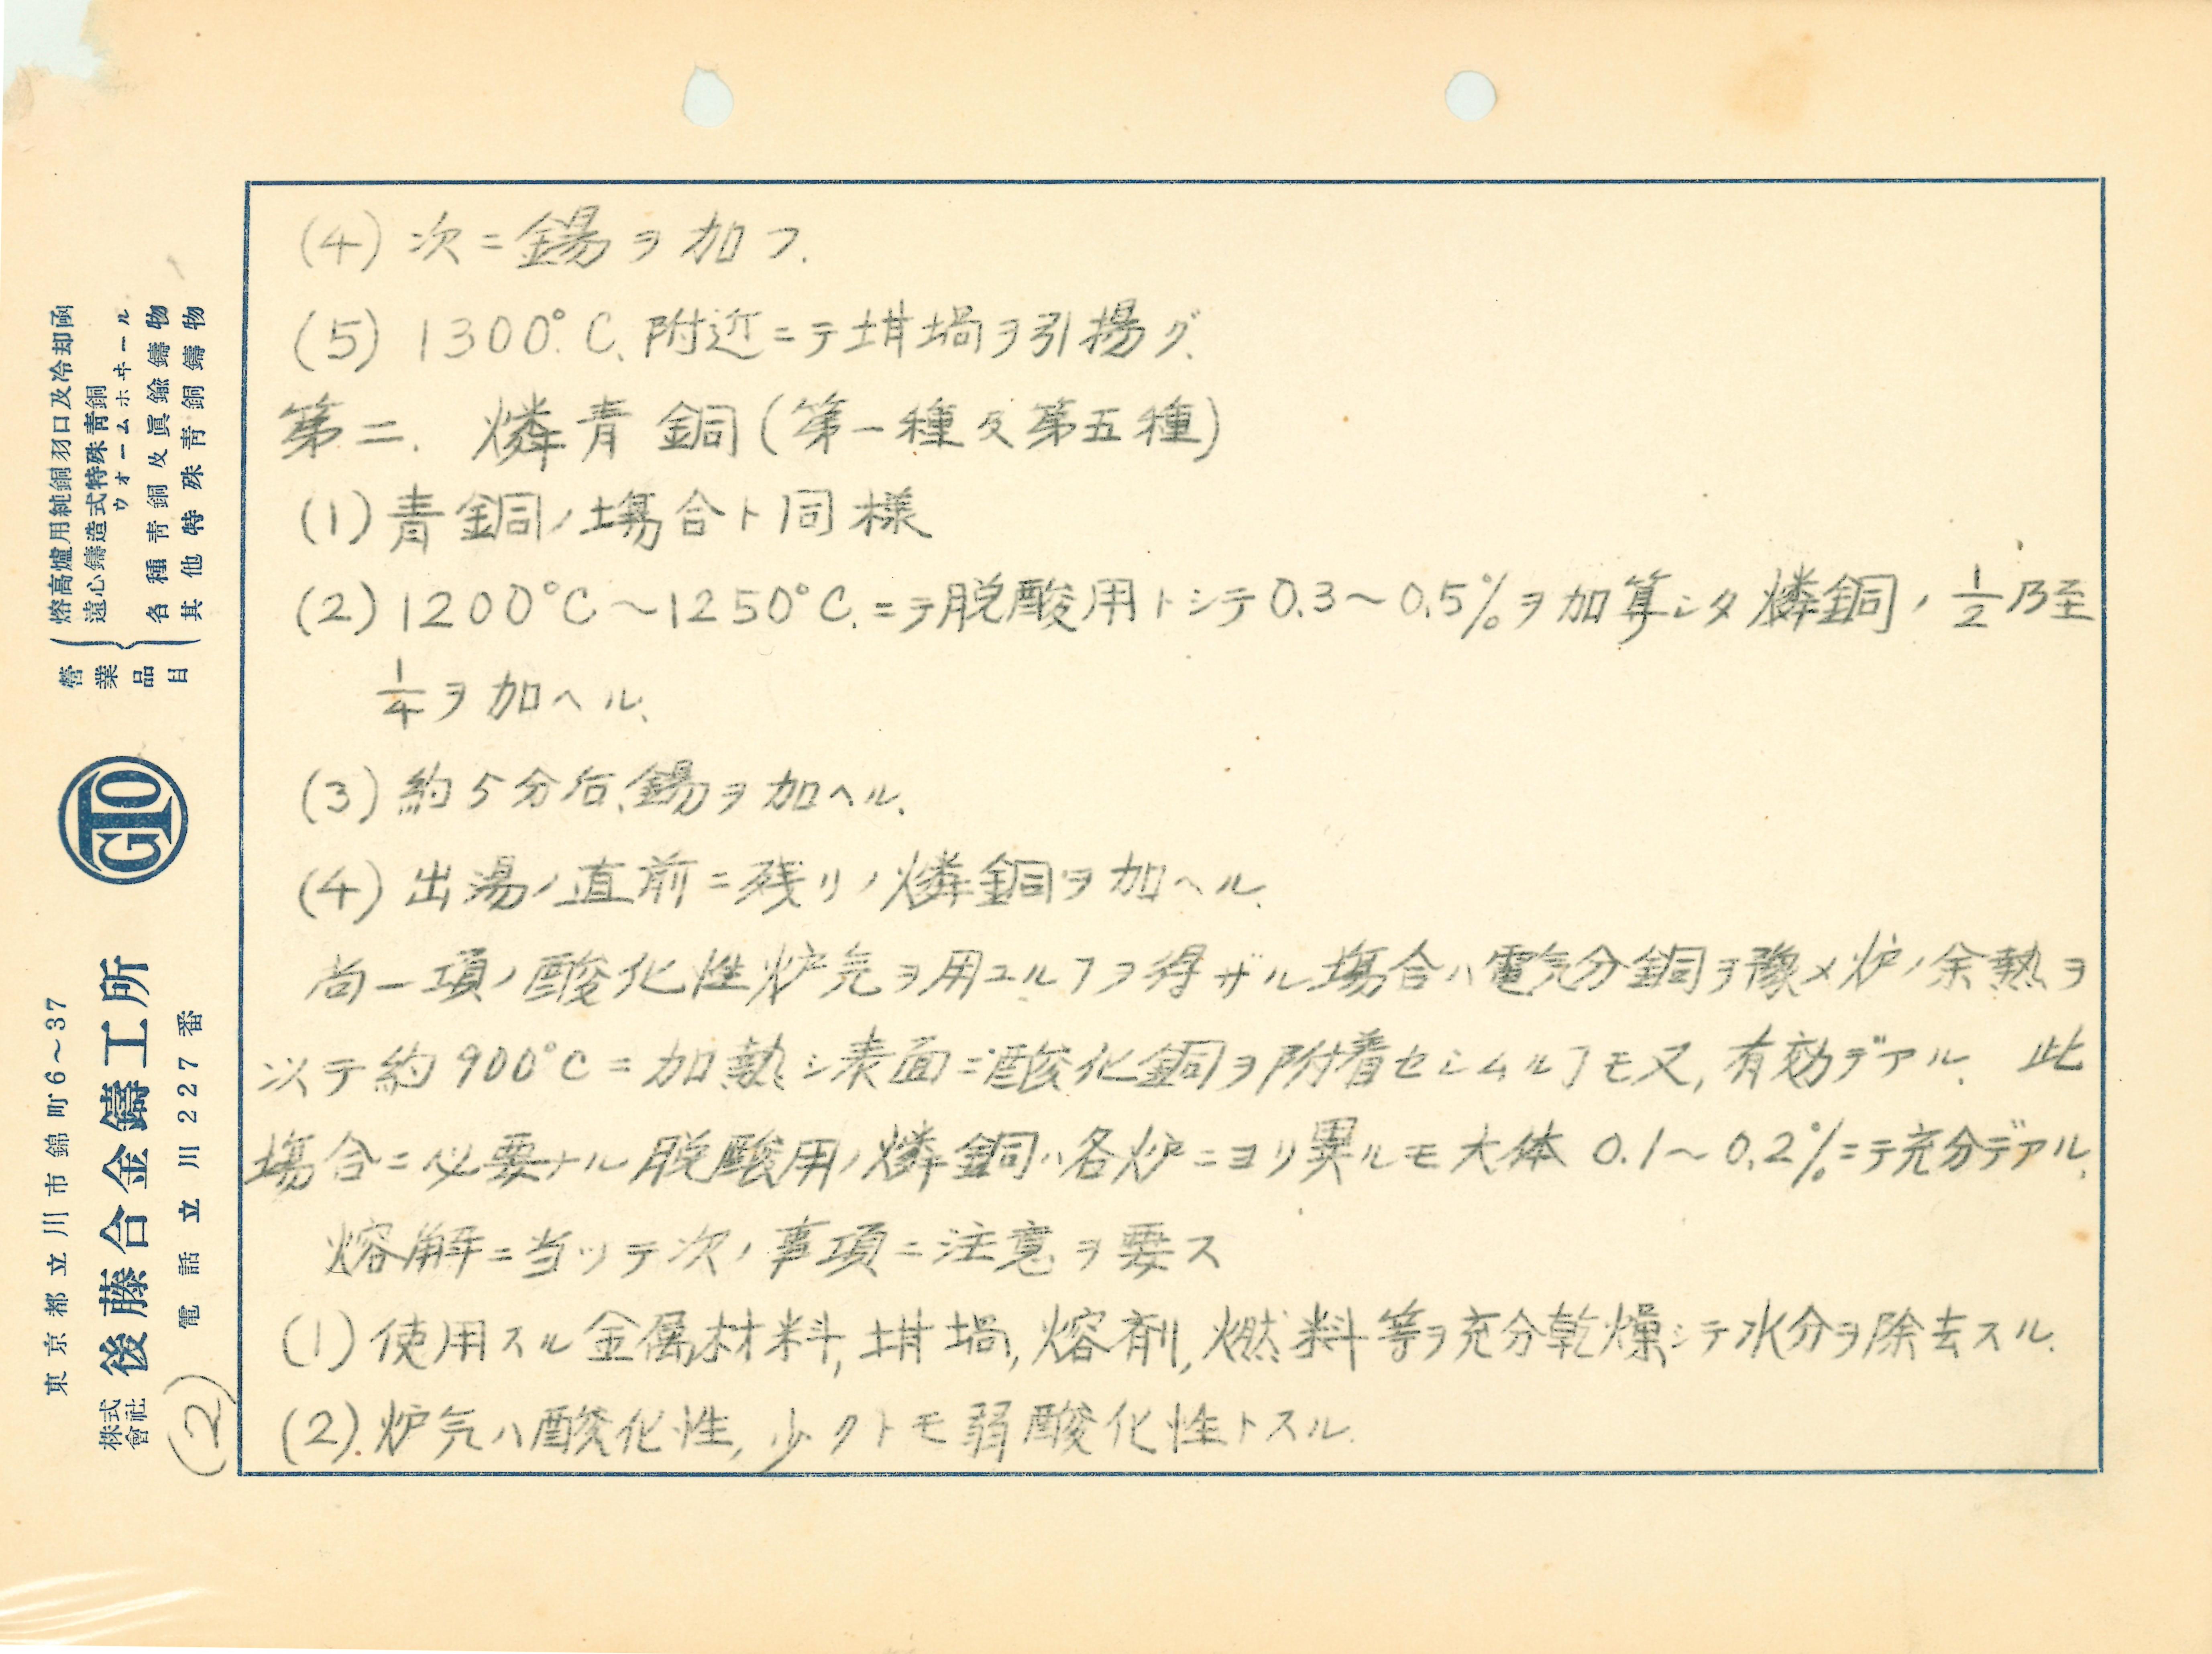 (4) 次ニ錫ヲ加フ.
(5) 1300°C.附近ニテ坩堝ヲ引揚グ.
第二. 燐青銅(第一種及第五種)
(1)青銅ノ場合ト同様
(2)1200°C〜1250°C.ニテ脱酸用トシテ0.3〜0.5%ヲ加算シタ燐銅ノ1/2乃至
1/4ヲ加ヘル.
(3)約5分后、錫ヲ加ヘル.
(4)出湯ノ直前ニ残リノ燐銅ヲ加ヘル.
尚一項ノ酸化性炉気ヲ用ユルヿヲ得ザル場合ハ電気分銅ヲ豫メ炉ノ余熱ヲ
以テ約900°Cニ加熱シ表面ニ酸化銅ヲ附着セシムルヿモ又,有効デアル. 此
場合ニ必要ナル脱酸用ノ燐銅ハ各炉ニヨリ異ルモ大体 0.1〜0.2%ニテ充分デアル.
熔解ニ当ッテ次ノ事項ニ注意ヲ要ス
(1)使用スル金属材料,坩堝,熔剤,燃料等ヲ充分乾燥シテ水分ヲ除去スル.
(2).炉気ハ酸化性,少クトモ弱酸化性トスル.
(2)
営業品目
熔高爐用純銅羽口及冷却函
遠心鑄造式特殊青銅
ウオームホヰール
各種青銅及眞鍮鑄物
其他特殊青銅鑄物
GTO
東京都立川市錦町6〜37
株式會社 後藤合金鑄工所
電話立川227番